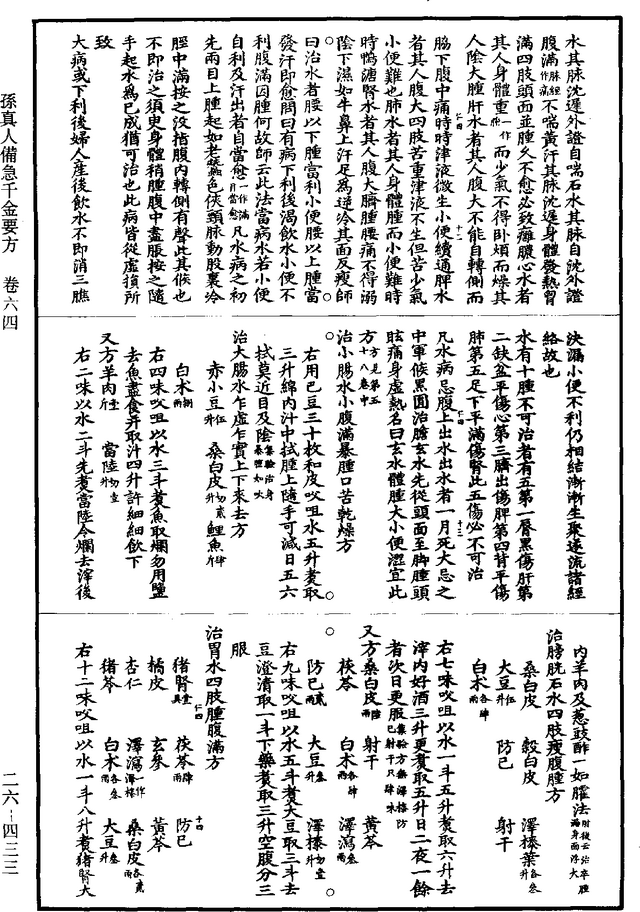 水其脉沈遲外證自喘石水其脉自沈外證
腹滿脉經作痛不喘黃汗其脉沈遲身體發熱胷
滿四肢頭面並腫久不愈必致癰膿心水者
其人身體重一作而少氣不得卧煩而燥其
人陰大腫肝水者其人腹大不能自轉側而
脇下腹中痛時時津液微生小便續通脾水
者其人腹大四肢苦重津液不生但苦少氣
小便難也肺水者其人身體腫而小便難時
時鴨溏腎水者其人腹大臍腫腰痛不得溺
陰下濕如牛鼻上汗足為逆冷其面反瘦師
曰治水者腰以下腫當利小便腰以上腫當
發汗即愈問曰有病下利後渴飲水小便不
利腹滿因腫何故師云此法當病水若小便
自利及汗出者自當愈一作滿月當愈凡水病之初
先兩目上腫起如老蠶色俠頸脉動股裏冷
脛中滿按之沒指腹內轉側有聲此其候也
不即治之須臾身體稍腫腹中盡脹按之隨
手起水為已成猶可治也此病皆從虛損所
致
大病或下利後婦人產後飲水不即消三膲
決漏小便不利仍相結漸漸生聚遂流諸經
絡故也
水有十腫不可治者有五第一脣黑傷肝第
二缺盆平傷心第三臍出傷脾第四背平傷
肺第五足下平滿傷腎此五傷必不可治
凡水病忌腹上出水出水者一月死大忌之
中軍候黑圓治膽玄水先從頭面至脚腫頭
眩痛身虛熱名曰玄水體腫大小便澀宜此
方方見第十八卷中
治小腸水小腹滿暴腫口苦乾燥方
右用巴豆三十枚和皮㕮咀水五升煮取
三升綿內汁中拭腫上隨手可減日五六
拭莫近目及陰集驗治身暴腫如吹
治大腸水乍虛乍實上下來去方
赤小豆伍升 桑白皮切貳升 鯉魚
白朮捌兩
右四味㕮咀以水三斗煮魚取爛勿用鹽
去魚盡食并取汁四升許細細飲下
又方羊肉壹斤 當陸切壹升
右二味以水二斗先煮當陸令爛去滓後
內羊肉及蔥豉酢一如臛法肘後云治卒腫滿身面浮大
治膀胱石水四肢瘦腹腫方
桑白皮 穀白皮 澤漆葉各叁升
大豆伍升 防己 射干
白朮各肆兩
右七味㕮咀以水一斗五升煮取六升去
滓內好酒三升更煮取五升日二夜一餘
者次日更服集驗方無澤漆防己射干只肆味
又方桑白皮陸兩 射干 黃芩
茯苓 白朮各肆兩 澤瀉叁兩
防己貳兩 大豆叁升 澤漆切壹升
右九味㕮咀以水五斗煮大豆取三斗去
豆澄清取一斗下藥煮取三升空腹分三
服
治胃水四肢腫腹滿方
豬腎壹具 茯苓肆兩 防己
橘皮 玄參 黃芩
杏仁 澤瀉一作澤漆 桑白皮各貳兩
豬苓 白朮各叁兩 大豆叁升
右十二味㕮咀以水一斗八升煮豬腎大
孫真人備急千金要方 卷六四
二六-四三三